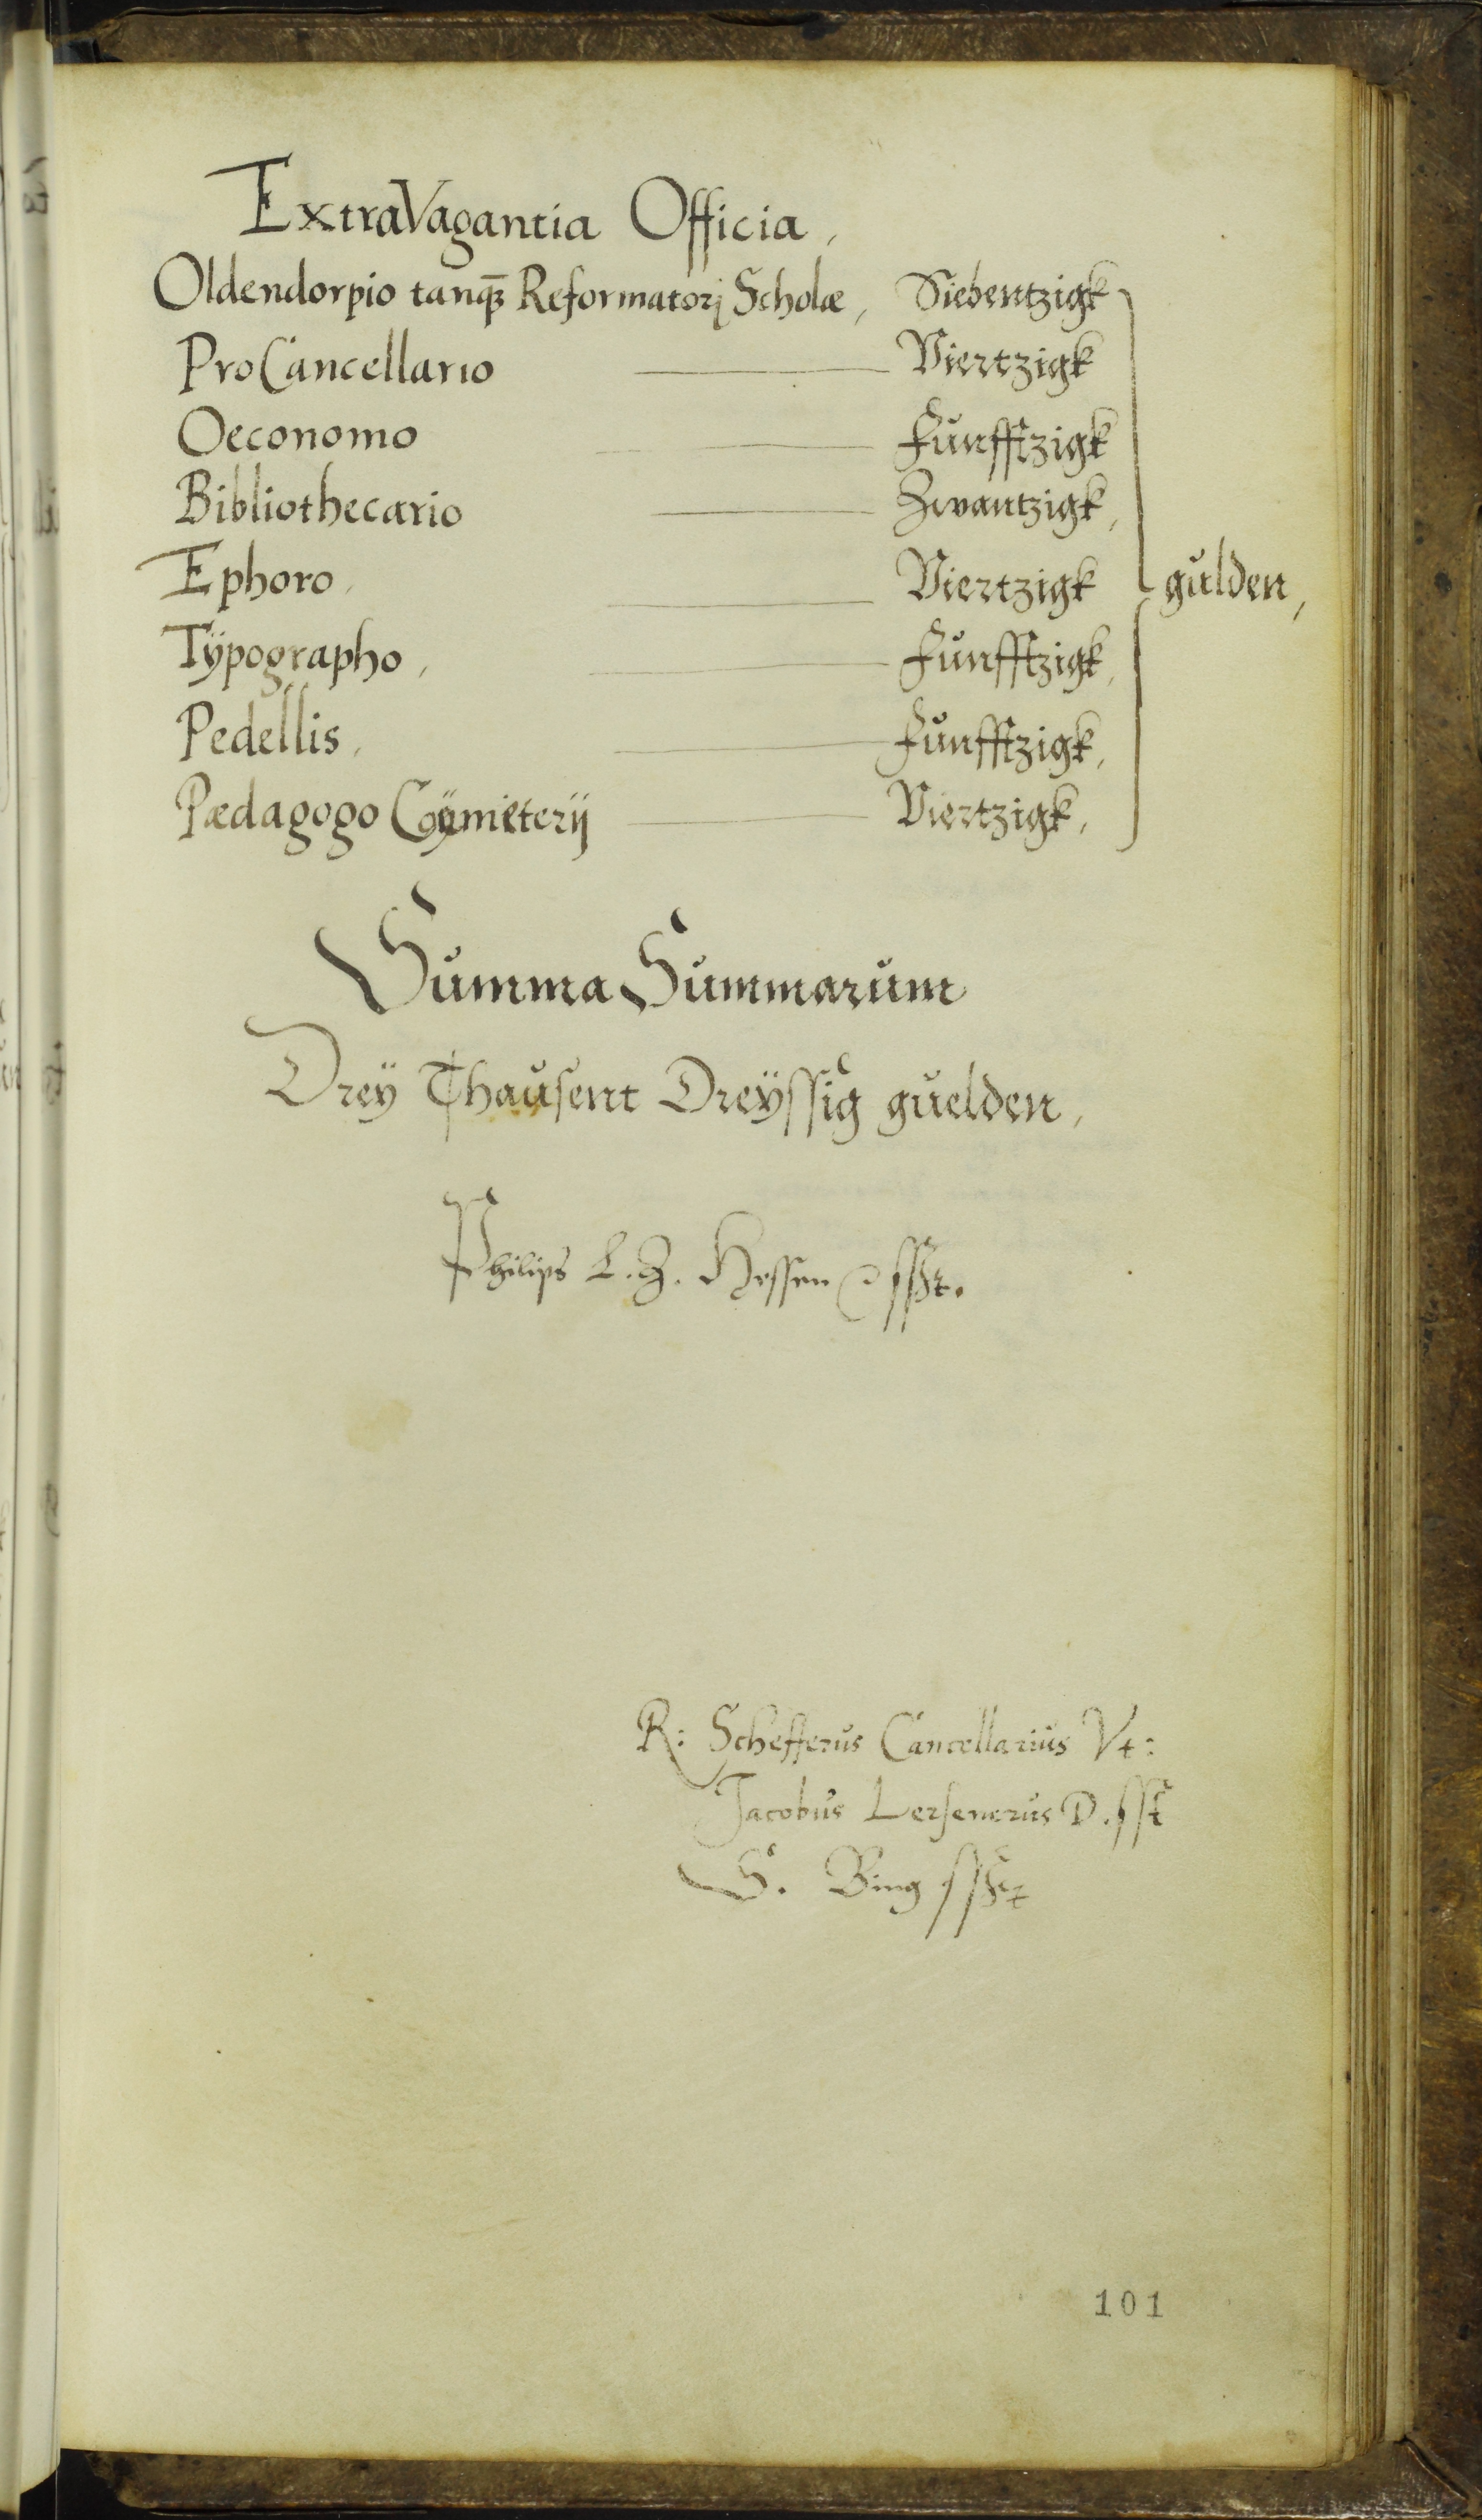 ExtraVagantia Officia,
Oldendorpio tanqȝ Reformatorj Scholæ, Siebentzigk
ProCancellario Viertzigk
Oeconomo Funfftzigk
Bibliothecario Zwantzigk,
Ephoro, Viertzigk gulden,
Tÿpographo, Funfftzigk,
Pedellis, Funfftzigk,
Pædagogo Cÿmiterij Viertzigk,
Summa Summarum
Dreÿ Thausent Dreÿssig guelden,
Philips L. Z. Hessen ssßt.
R: Schefferus Cancellarius Vt:
Jacobus Lersenerus D. sst
S. Bing
101